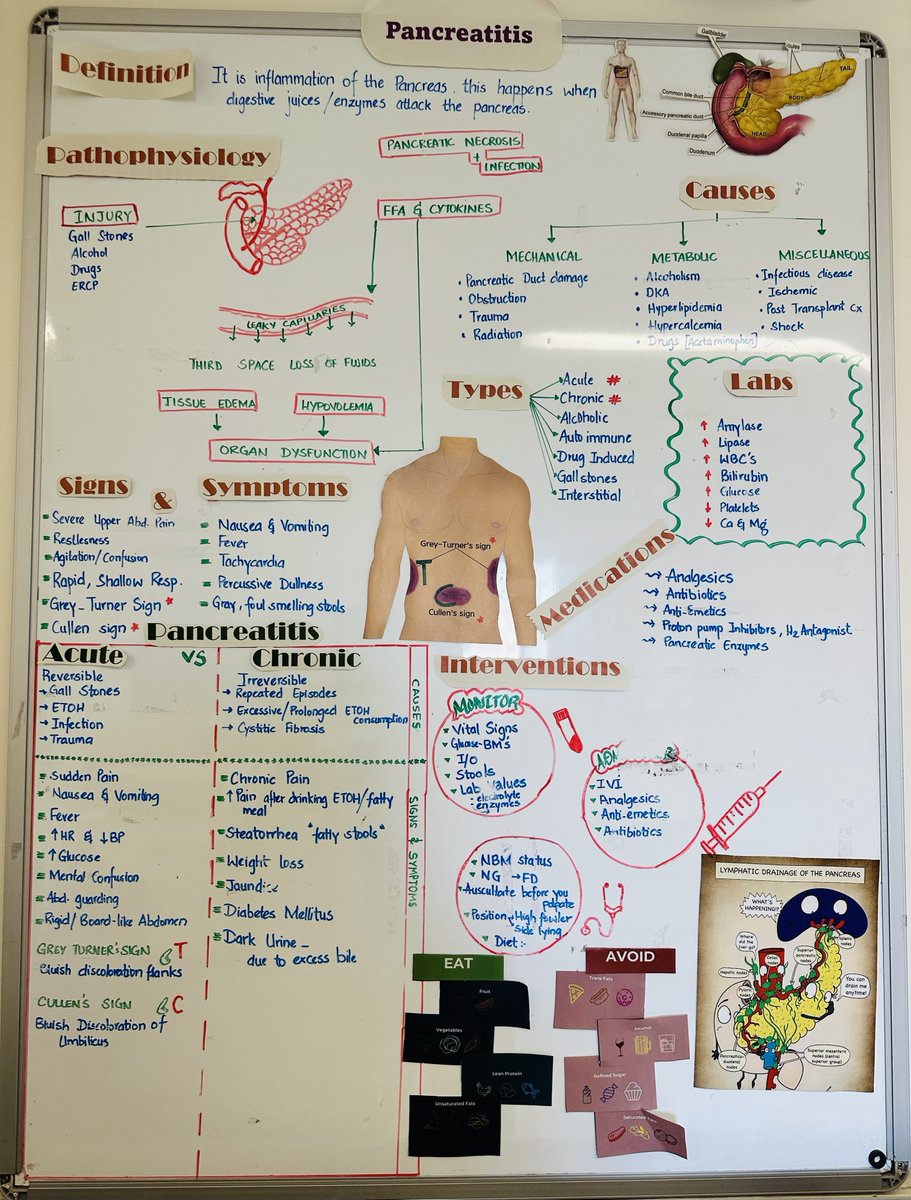 Pancreatitis
Definition
It is inflammation of the Pancreas, this happens when
digestive juices/enzymes attack the pancreas.
Gallbladder
TAIL
BODY
HEAD
Common bile duct
Accessory pancreatic duct
Duodenal papilla
Duodenum
Pathophysiology
PANCREATIC NECROSIS
+
INFECTION
INJURY
Gall Stones
Alcohol
Drugs
ERCP
FFA & CYTOKINES
LEAKY CAPILLARIES
THIRD SPACE LOSS OF FLUIDS
TISSUE EDEMA
HYPOVOLEMIA
ORGAN DYSFUNCTION
Causes
MECHANICAL
• Pancreatic Duct damage
• Obstruction
• Trauma
• Radiation
METABOLIC
• Alcoholism
• DKA
• Hyperlipidemia
• Hypercalcemia
• Drugs [Acetaminophen]
MISCELLANEOUS
• Infectious disease
• Ischemic
• Post Transplant Cx
• Shock
Types
Acute #
Chronic #
Alcoholic
Auto immune
Drug Induced
Gallstones
Interstitial
Labs
↑ Amylase
↑ Lipase
↑ WBC's
↑ Bilirubin
↑ Glucose
↓ Platelets
↓ Ca & Mg
Signs & Symptoms
Severe Upper Abd. Pain
Restlesness
Agitation/Confusion
Rapid, Shallow Resp.
Grey-Turner Sign *
Cullen sign *
Nausea & Vomiting
Fever
Tachycardia
Percussive Dullness
Gray, foul smelling stools
Grey-Turner's sign
T
C
Cullen's sign
Medications
→ Analgesics
→ Antibiotics
→ Anti-Emetics
→ Proton pump Inhibitors, H2 Antagonist
→ Pancreatic Enzymes
Pancreatitis
Acute VS Chronic
CAUSES
Reversible
→ Gall Stones
→ ETOH
→ Infection
→ Trauma
Irreversible
→ Repeated Episodes
→ Excessive/Prolonged ETOH
consumption
→ Cystitic Fibrosis
SIGNS & SYMPTOMS
Sudden Pain
Nausea & Vomiting
Fever
↑HR & ↓BP
↑Glucose
Mental Confusion
Abd. guarding
Rigid/Board-like Abdomen
GREY TURNER'S SIGN T
Bluish discoloration flanks
CULLEN'S SIGN C
Bluish Discoloration of
Umbilicus
Chronic Pain
↑ Pain after drinking ETOH/fatty
meal
Steatorrhea "fatty stools"
Weight loss
Diabetes Mellitus
Dark Urine -
due to excess bile
Interventions
MONITOR
Vital Signs
Glucose-BM's
I/O
Stools
Lab Values
: electrolyte
enzymes
IVI
Analgesics
Anti-emetics
Antibiotics
NBM status
NG → FD
Auscultate before you
palpate
Position, High fowler
side lying
Diet:-
EAT
Fruit
Vegetables
Lean Protein
Unsaturated Fats
AVOID
Trans Fats
Alcohol
Refined Sugar
LYMPHATIC DRAINAGE OF THE PANCREAS
WHAT'S
HAPPENING!?
Where
did the
liver go?
Celiac
nodes
Superior
pancreatic
nodes
Splenic
nodes
Hepatic nodes
Pyloric
nodes
You can
drain me
anytime!
Pancreatico
duodenal
nodes
Superior mesenteric
nodes (central
superior group)